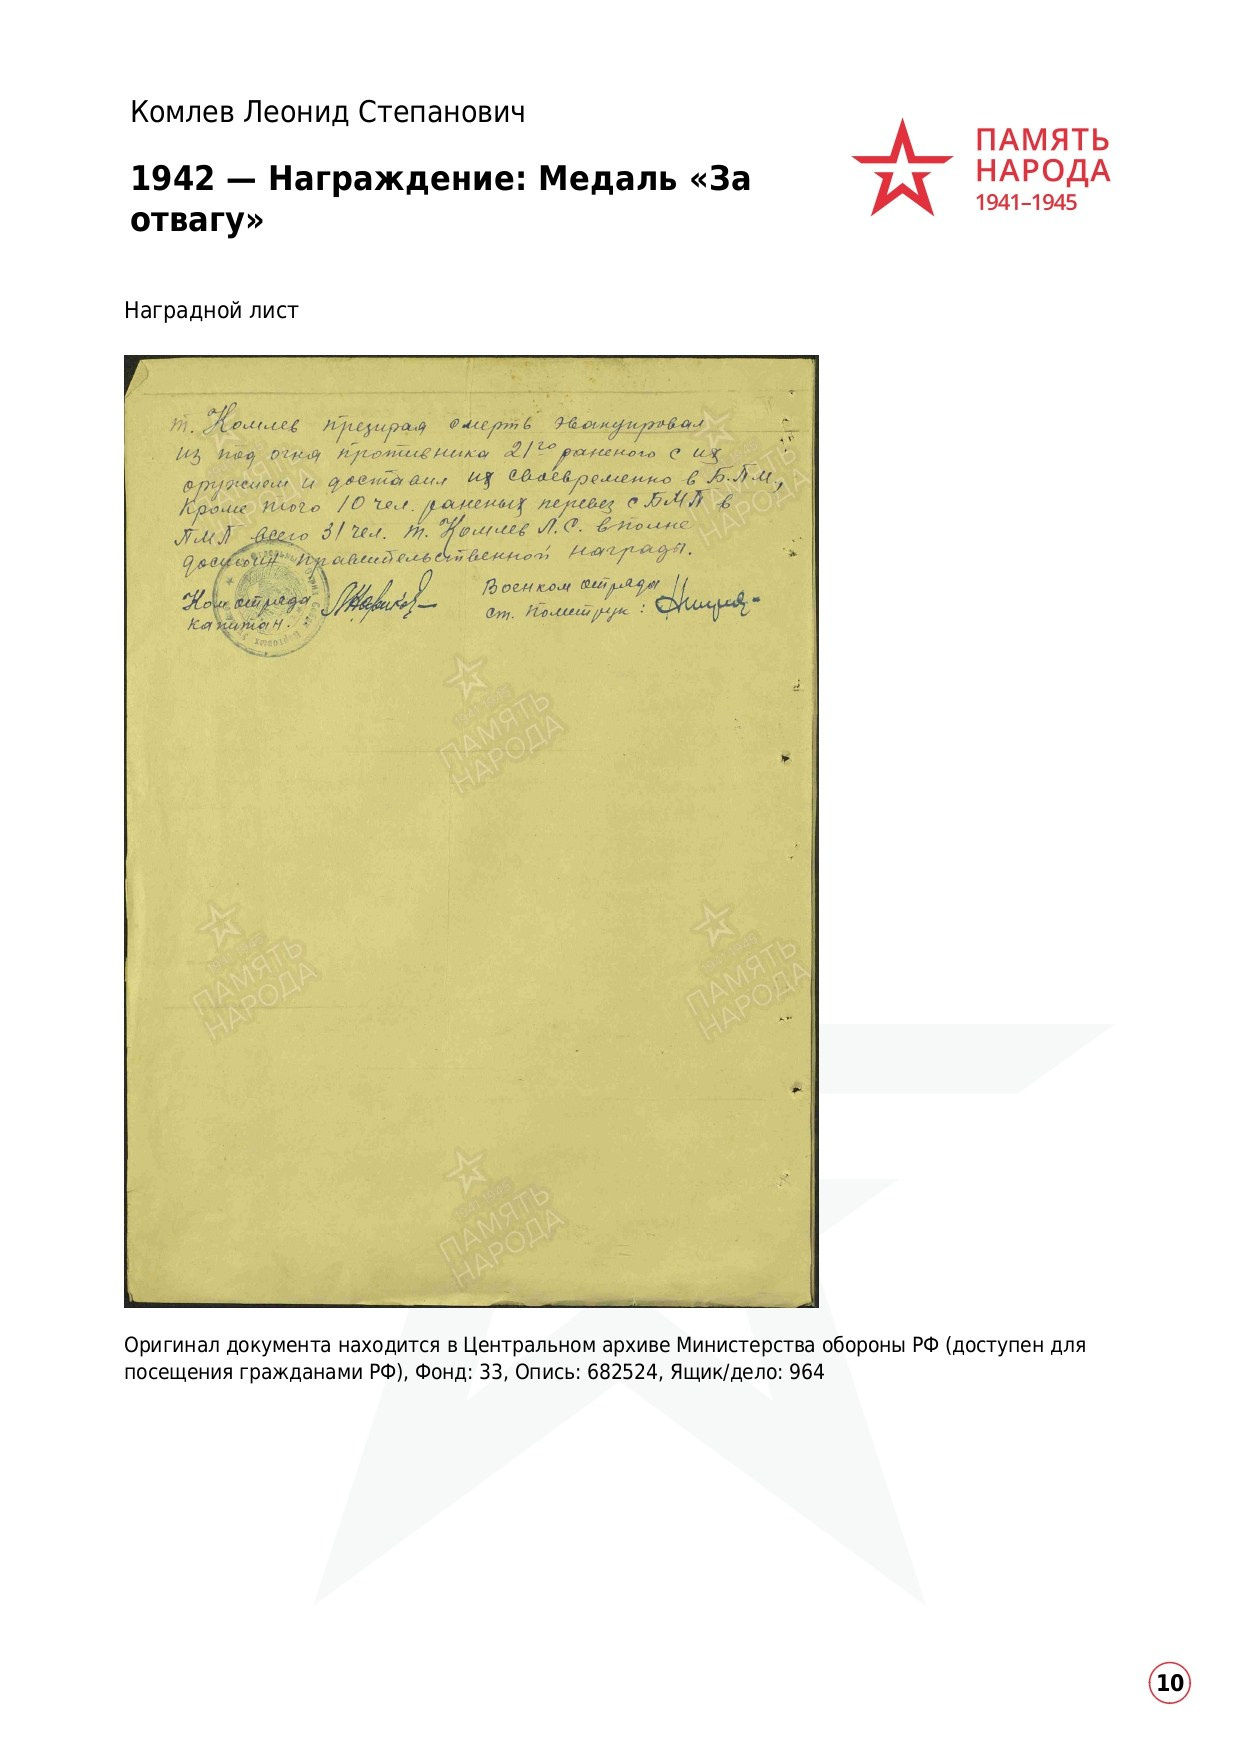 Комлев Леонид Степанович
1942 — Награждение: Медаль «За
отвагу»
ПАМЯТЬ
НАРОДА
1941–1945
Наградной лист
т. Комлев презирая смерть эвакуировал
из под огня противника 21го раненого с их
оружием и доставил их своевременно в Б.П.М.,
Кроме того 10 чел. раненых перевез с БМП в
ПМП всего 31 чел. т. Комлев Л.С. вполне
достоин правительственной награды.
Ком отряда
капитан.
Военком отряда
ст. политрук :
ПАМЯТЬ
НАРОДА
ПАМЯТЬ
НАРОДА
ПАМЯТЬ
НАРОДА
ПАМЯТЬ
НАРОДА
Оригинал документа находится в Центральном архиве Министерства обороны РФ (доступен для
посещения гражданами РФ), Фонд: 33, Опись: 682524, Ящик/дело: 964
10